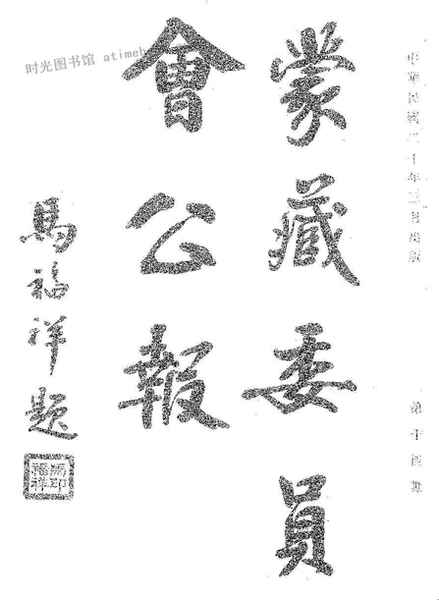 中華民國二十年三月出版
蒙藏委員
會公報
馬福祥題
馬印
福祥
时光图书馆 atimeb